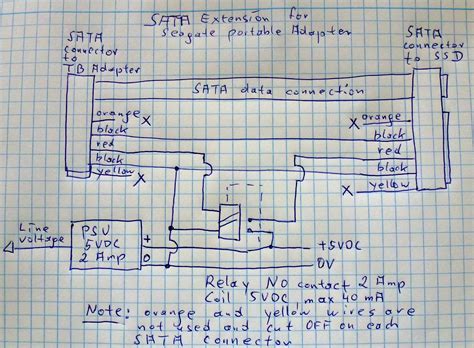 SATA Extension for
Seagate portable Adapter
SATA
connector
to
TB Adapter
SATA
connector
to SSD
SATA data connection
orange X
black
red
black
yellow X
X orange
black
red
black
X yellow
Line
voltage
PSU
5VDC
2 Amp
+
0
+5VDC
0V
Relay NO contact 2 Amp
Coil 5VDC, max 40 mA
Note: orange and yellow wires are
not used and cut OFF on each
SATA Connector